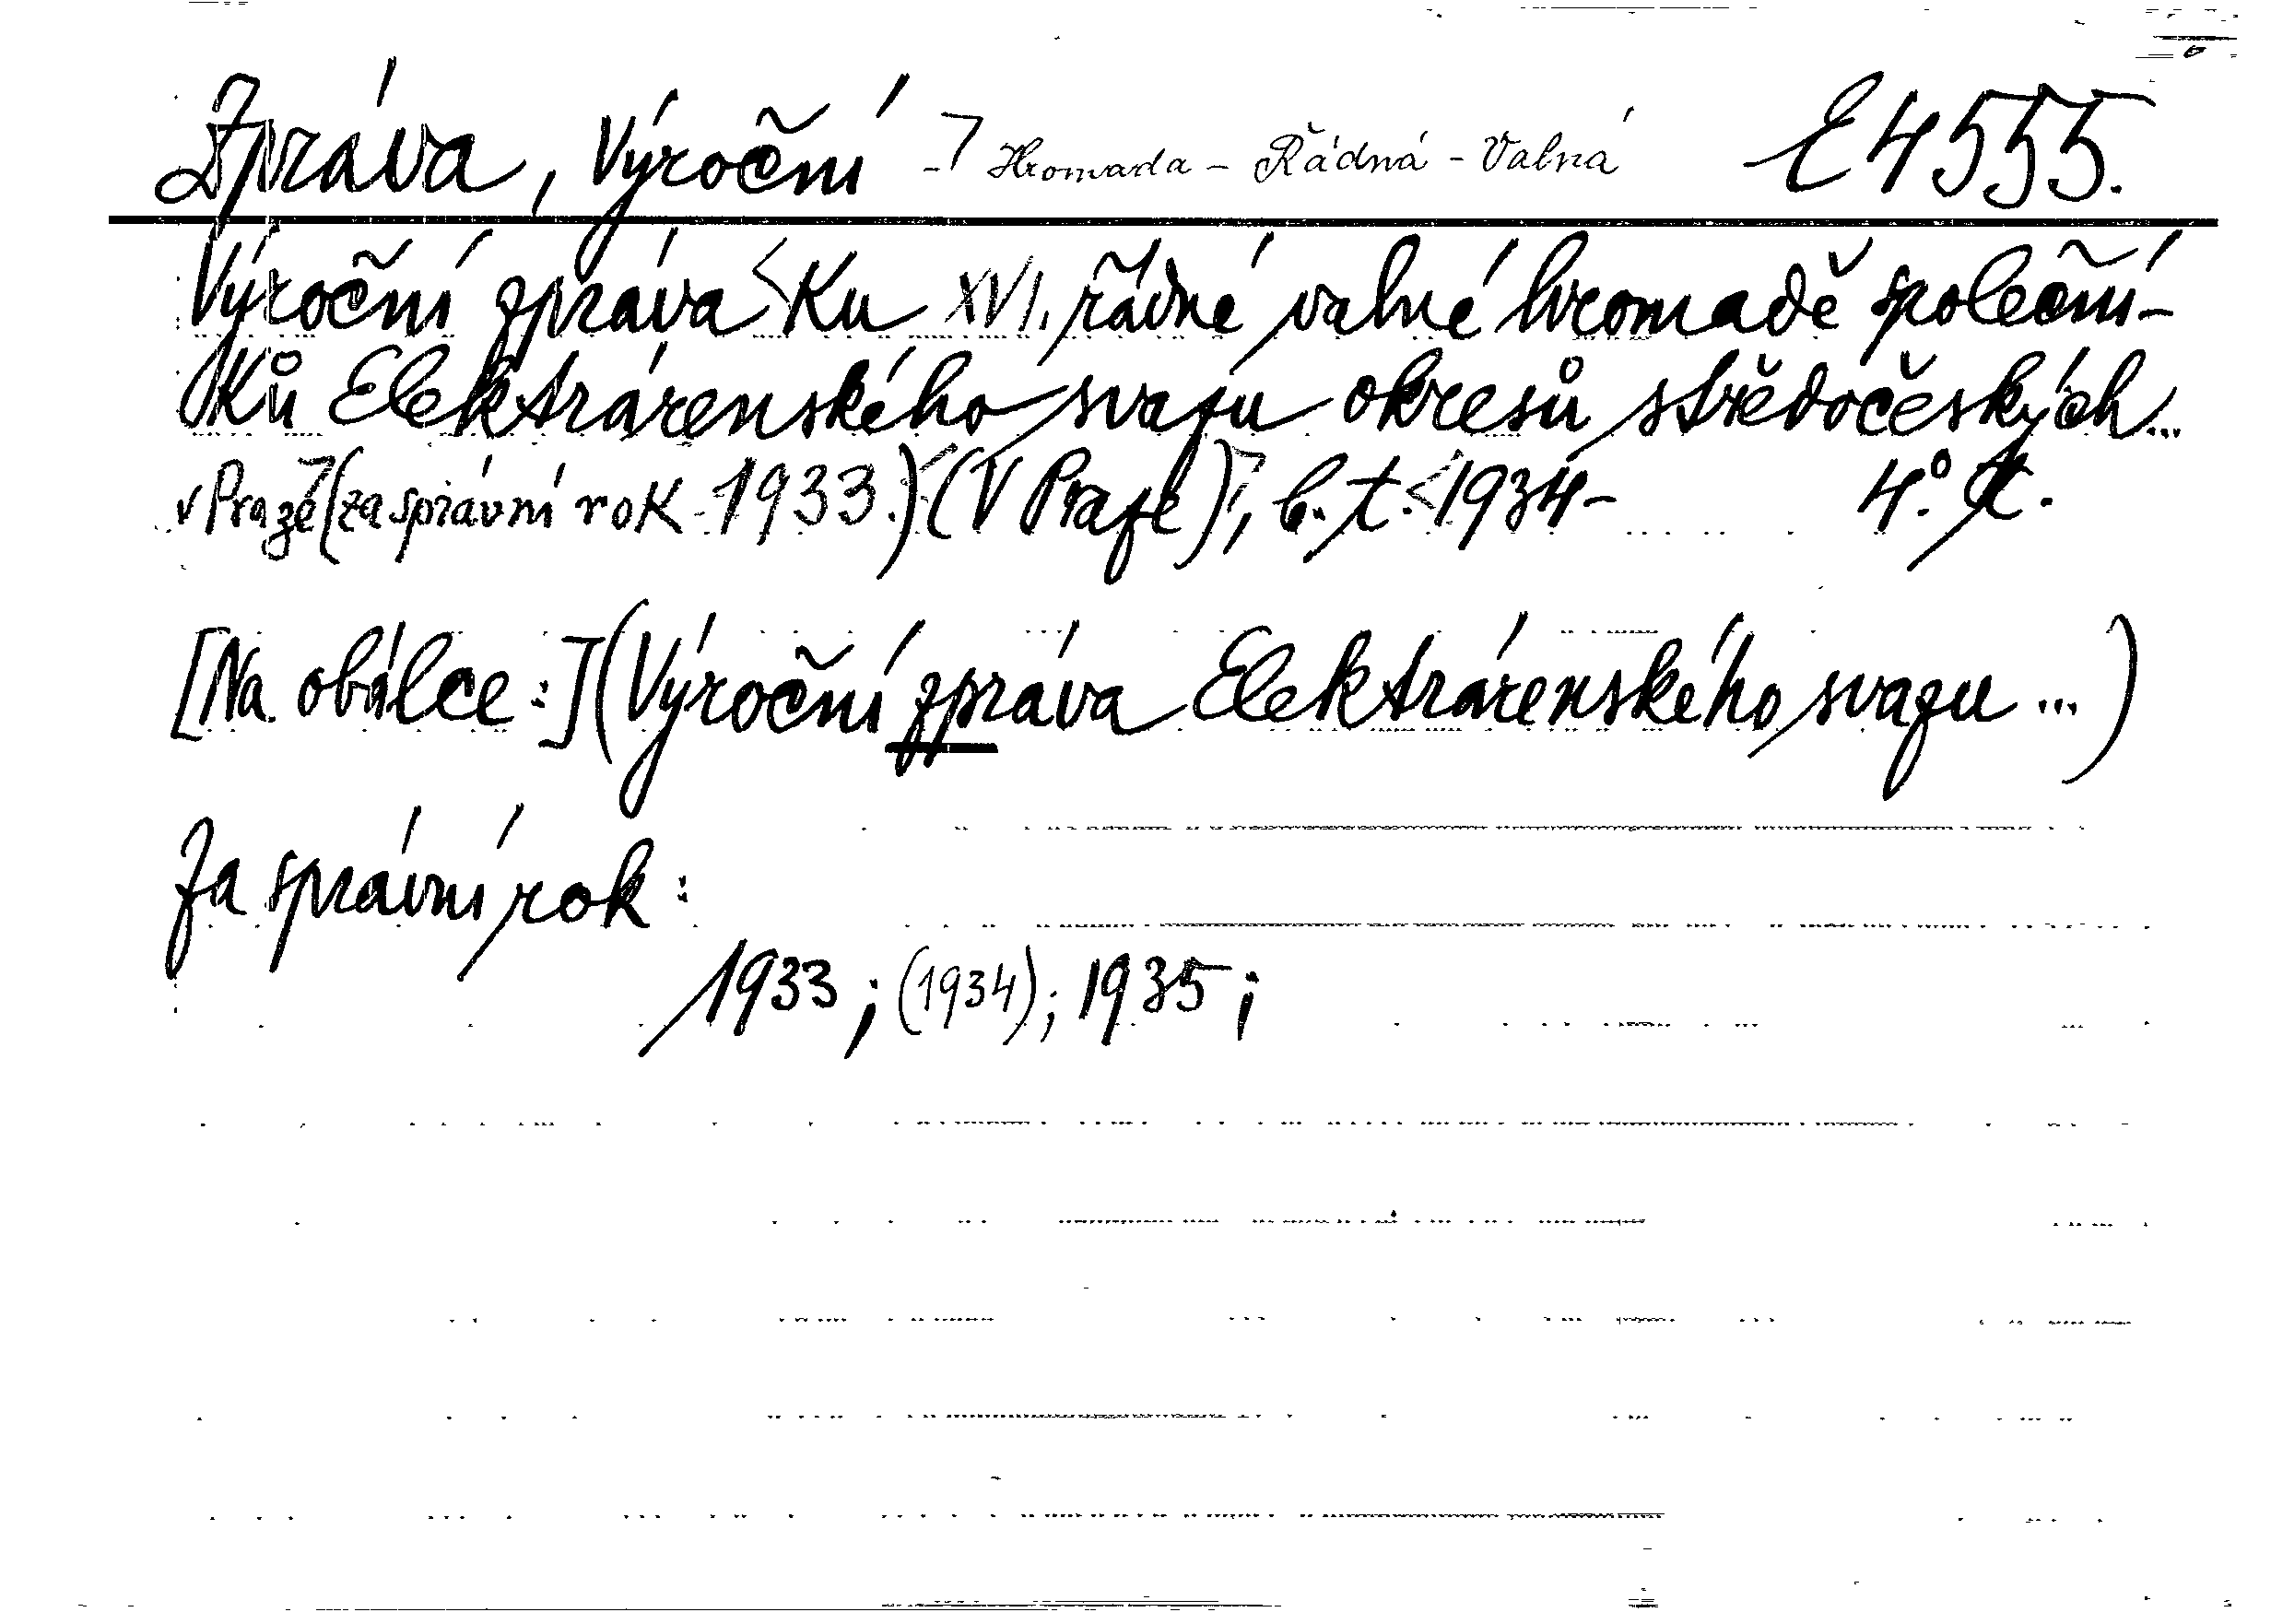 Zpráva, Výroční - Hromada - Řádná - Valná E 4555.
Výroční zpráva <Ku XVI. řádné valné hromadě společní-
ků Elektrárenského svazu okresů středočeských...
v Praze (za správní rok 1933.) (V Praze), b. t. <1934- 4°.
[Na obálce:] (Výroční zpráva Elektrárenského svazu ...)
Za správní rok:
1933; (1934); 1935;